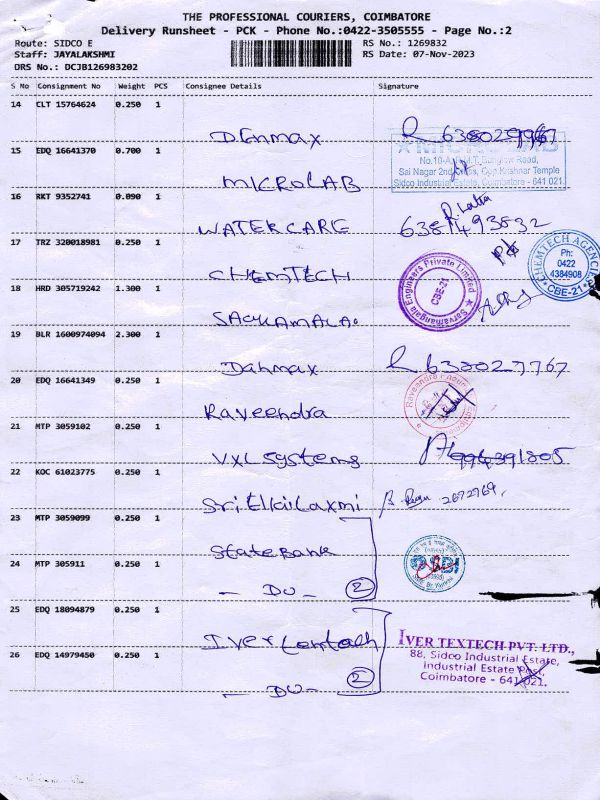 THE PROFESSIONAL COURIERS, COIMBATORE
Delivery Runsheet - PCK - Phone No.:0422-3505555 - Page No.:2
Route: SIDCO E RS No.: 1269832
Staff: JAYALAKSHMI RS Date: 07-Nov-2023
DRS No.: DCJB126983202
S No Consignment No Weight PCS Consignee Details Signature
14 CLT 15764624 0.250 1
Denmax
15 EDQ 16641370 0.700 1
No.10-A,
Sai Nagar 2nd Cross, Opp.Krishnar Temple
Sidco Industrial Estate, Coimbatore - 641 021.
MICROLAB
16 RKT 9352741 0.090 1
WATERCARE 6381493832
17 TRZ 320018981 0.250 1
CHEMTECH AGENCIES
Ph:
0422
4384908
CBE-21
CHEMTECH
18 HRD 305719242 1.300 1
Sarvamangala Engineers Private Limited
CBE-21
19 BLR 1600974094 2.300 1
Danmax
20 EDQ 16641349 0.250 1
Raveendra
21 MTP 3059102 0.250 1
VXL Systems
22 KOC 61023775 0.250 1
2672769
23 MTP 3059099 0.250 1
State Bank
24 MTP 305911 0.250 1
SBI
- DO - 2
25 EDQ 18094879 0.250 1
IVER TEXTECH PVT. LTD.,
88, Sidco Industrial Estate,
Industrial Estate Post,
Coimbatore - 641 021.
26 EDQ 14979450 0.250 1
- DO - 2